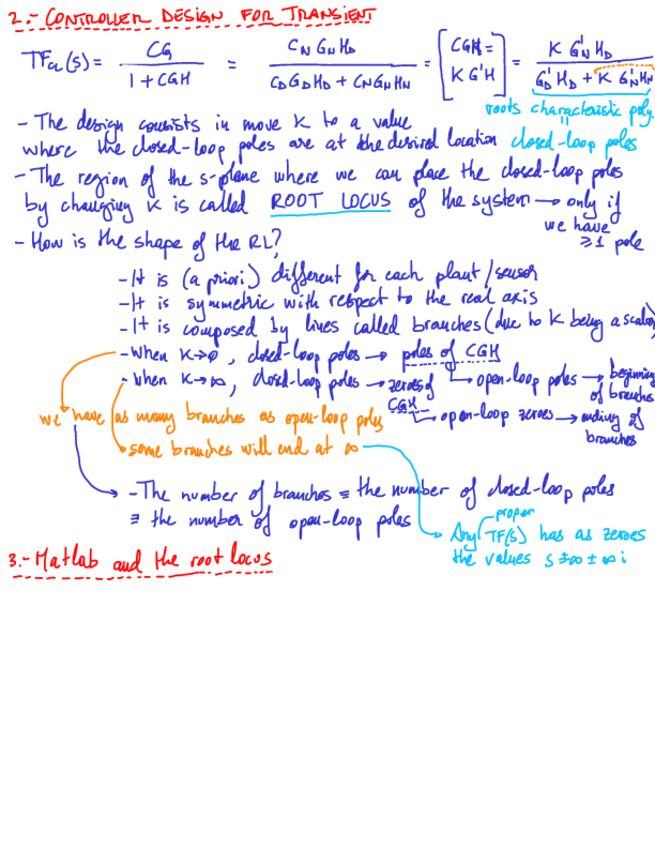 2.- CONTROLLER DESIGN FOR TRANSIENT
TF_CL(s) = CG / (1 + CGH) = C_N G_N H_D / (C_D G_D H_D + C_N G_N H_N) = [CGH = K G'H] = K G'_N H_D / (G'_D H_D + K G'_N H_N)
roots characteristic poly.
=
- The design consists in move K to a value
where the closed-loop poles are at the desired location closed-loop poles
- The region of the s-plane where we can place the closed-loop poles
by changing K is called ROOT LOCUS of the system → only if
we have
≥ 1 pole
- How is the shape of the RL?
- It is (a priori) different for each plant/sensor
- It is symmetric with respect to the real axis
- It is composed by lines called branches (due to K being a scalar)
- When K→0, closed-loop poles → poles of CGH
- When K→∞, closed-loop poles → zeroes of CGH
open-loop poles → beginning of branches
open-loop zeroes → ending of branches
we have as many branches as open-loop poles
some branches will end at ∞
- The number of branches ≡ the number of closed-loop poles
≡ the number of open-loop poles
proper
Any TF(s) has as zeroes
the values s = ±∞ ± ∞i
3.- Matlab and the root locus